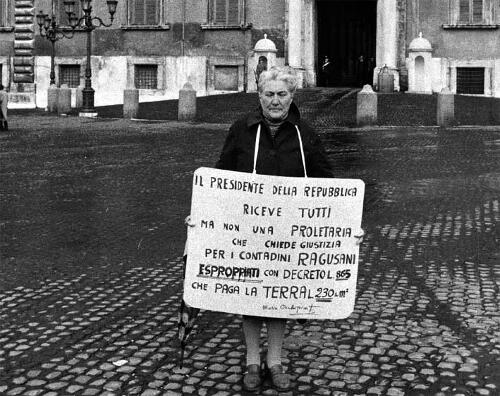 IL PRESIDENTE DELLA REPUBBLICA
RICEVE TUTTI
MA NON UNA PROLETARIA
CHE CHIEDE GIUSTIZIA
PER I CONTADINI RAGUSANI
ESPROPRIATI CON DECRETO L. 865
CHE PAGA LA TERRA L 230 L m²
Maria